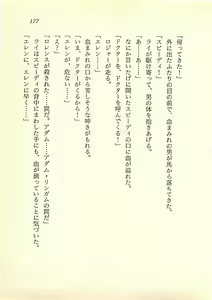 「帰ってきた!」
外に出たふたりの目の前で、血まみれの男が馬から落ちてきた。
「スピーディ!」
ライが駆け寄って、男の体を抱きあげる。
「ドクターを、ドクターを呼んでくる!」
なにか言いたげに開いたスピーディの口に血が溢れた。
ロジャーが走る。
「エレン……」
血まみれの口から苦しそうな呻きがもれる。
「いま、ドクターがくるから!」
「エレンが、危ない……」
「え?」
「ロレンスが殺された……罠だ。アダム……アダム・リンガムの罠だ」
ライはスピーディの背中にまわした手にも、血が滴っていることに気づいた。
「エレンに、エレンに早く……」
177